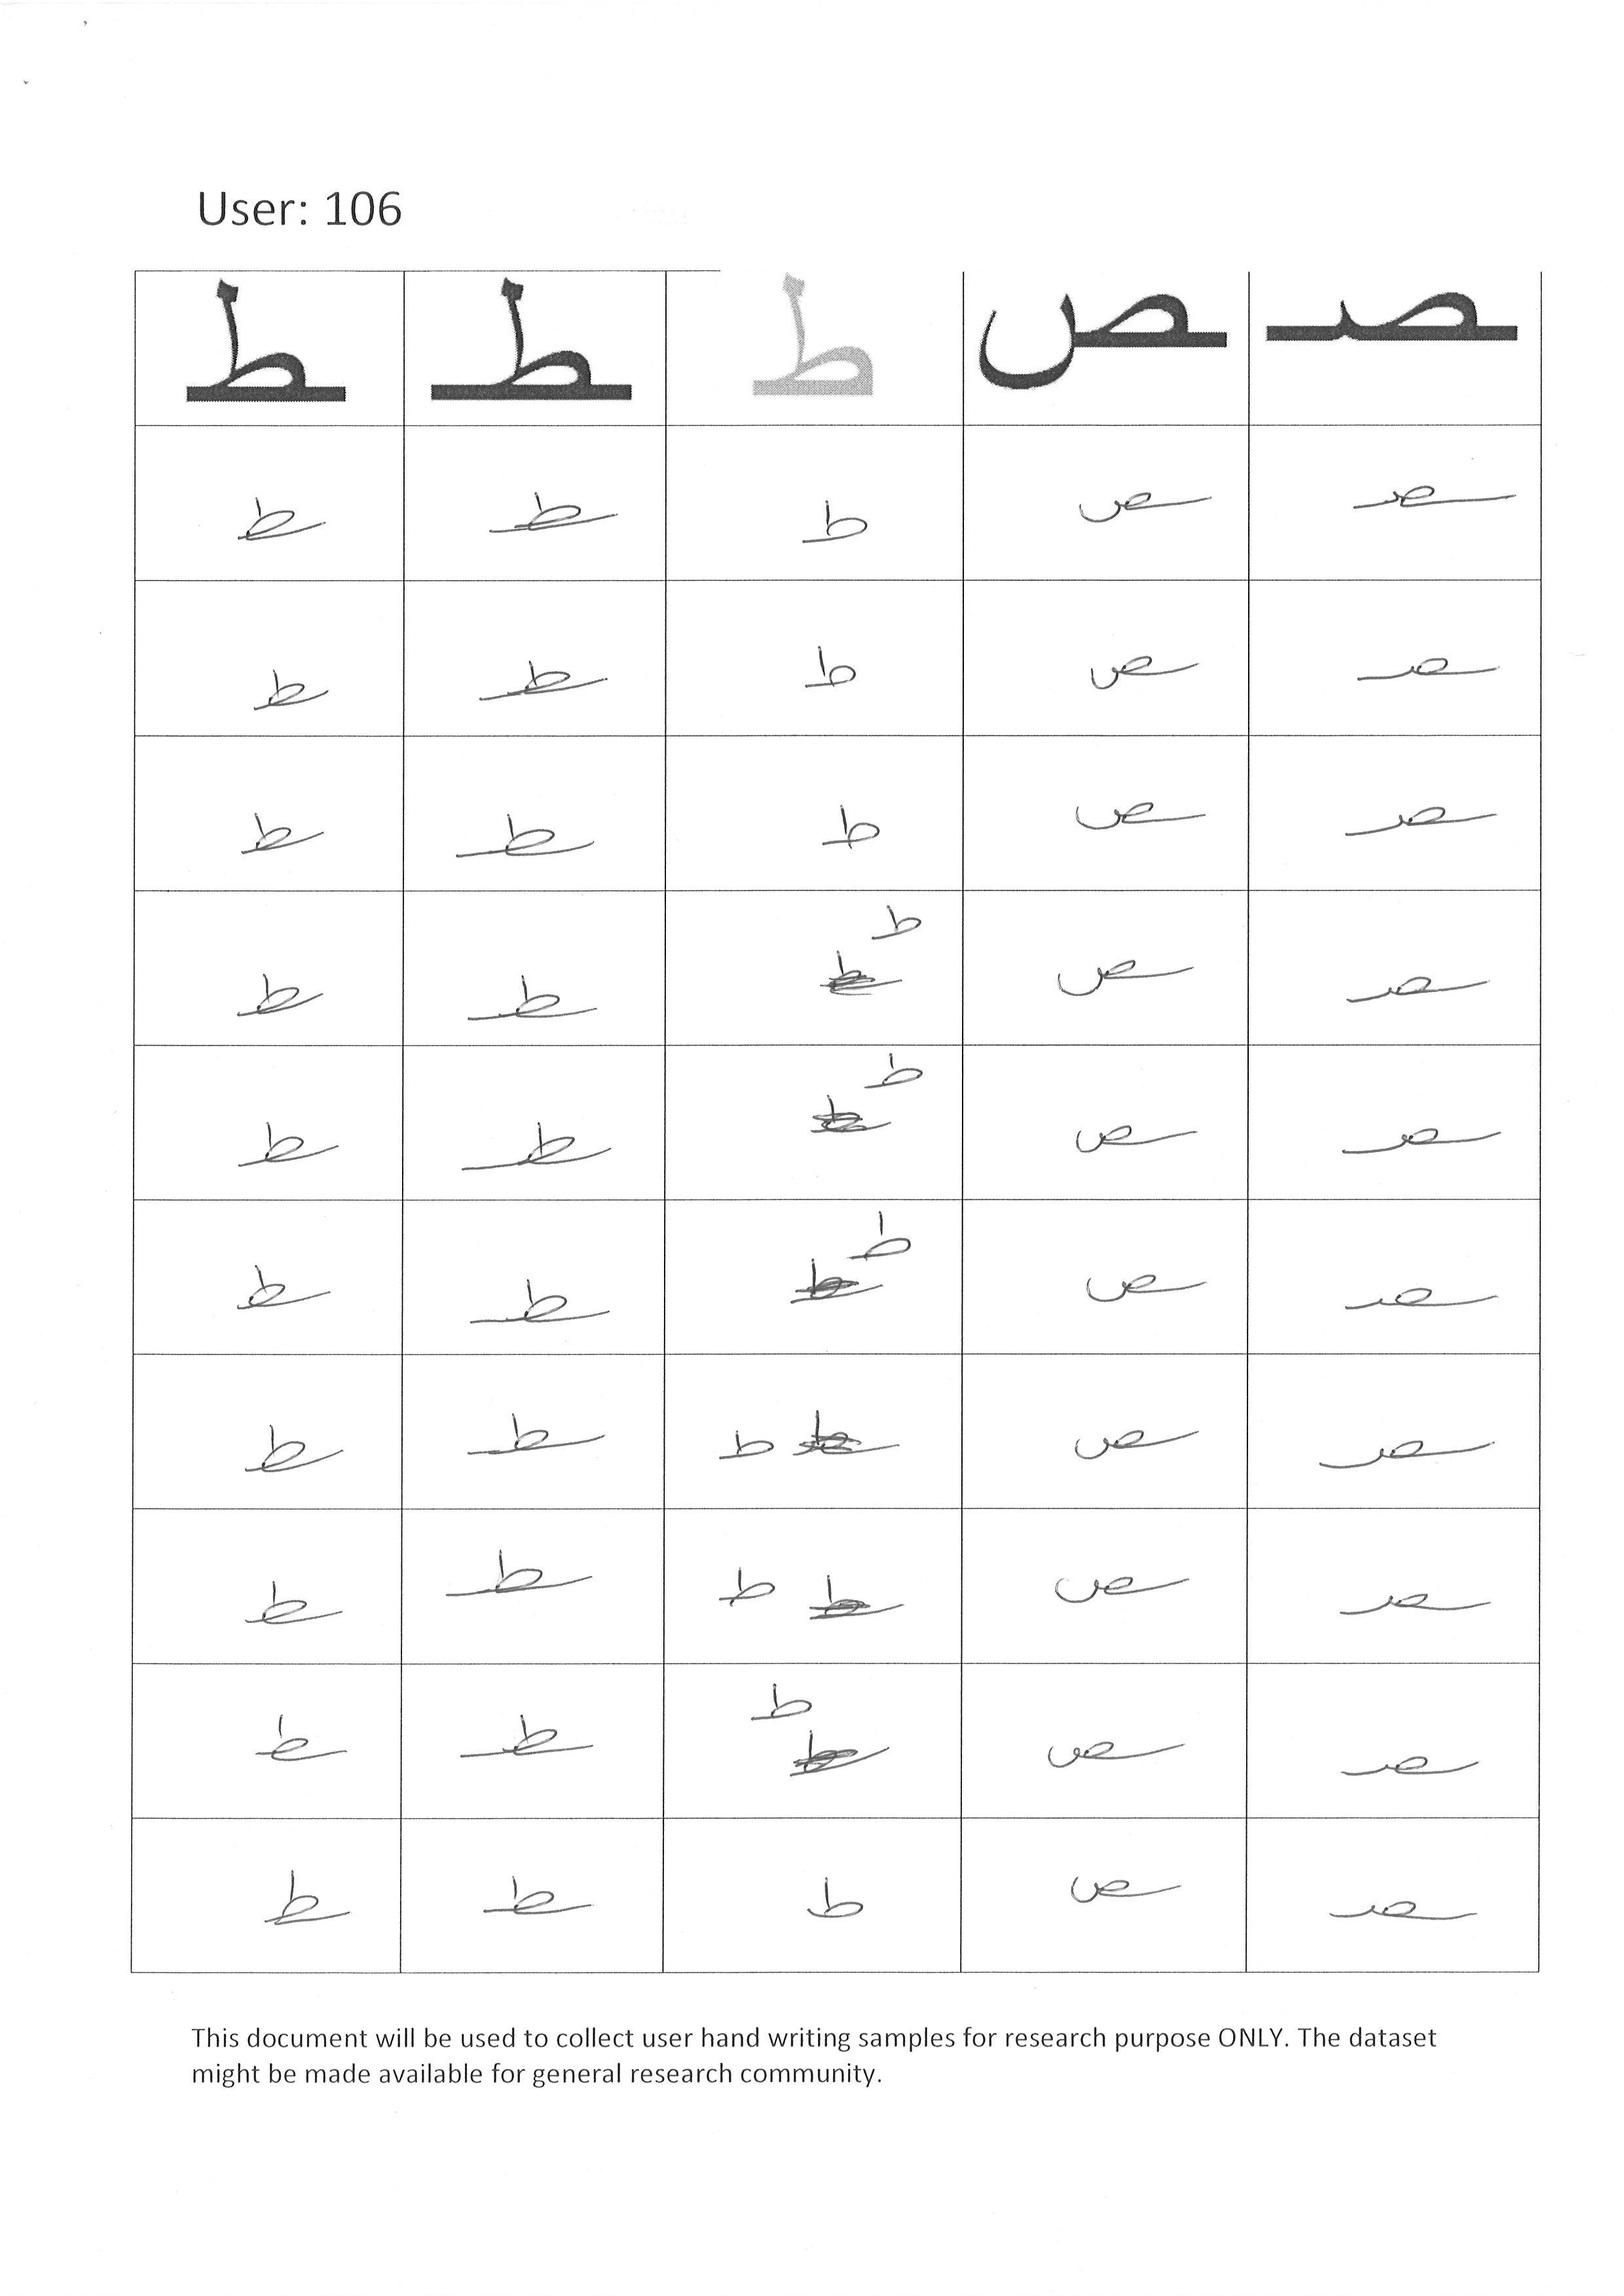 User: 106
ـط ـطـ ط ـص ـصـ
ـط ـطـ ط ـص ـصـ
ـط ـطـ ط ـص ـصـ
ـط ـطـ ط ـص ـصـ
ـط ـطـ ط ـص ـصـ
ـط ـطـ ط ـص ـصـ
ـط ـطـ ط ـص ـصـ
ـط ـطـ ط ـص ـصـ
ـط ـطـ ط ـص ـصـ
ـط ـطـ ط ـص ـصـ
ـط ـطـ ط ـص ـصـ
This document will be used to collect user hand writing samples for research purpose ONLY. The dataset
might be made available for general research community.